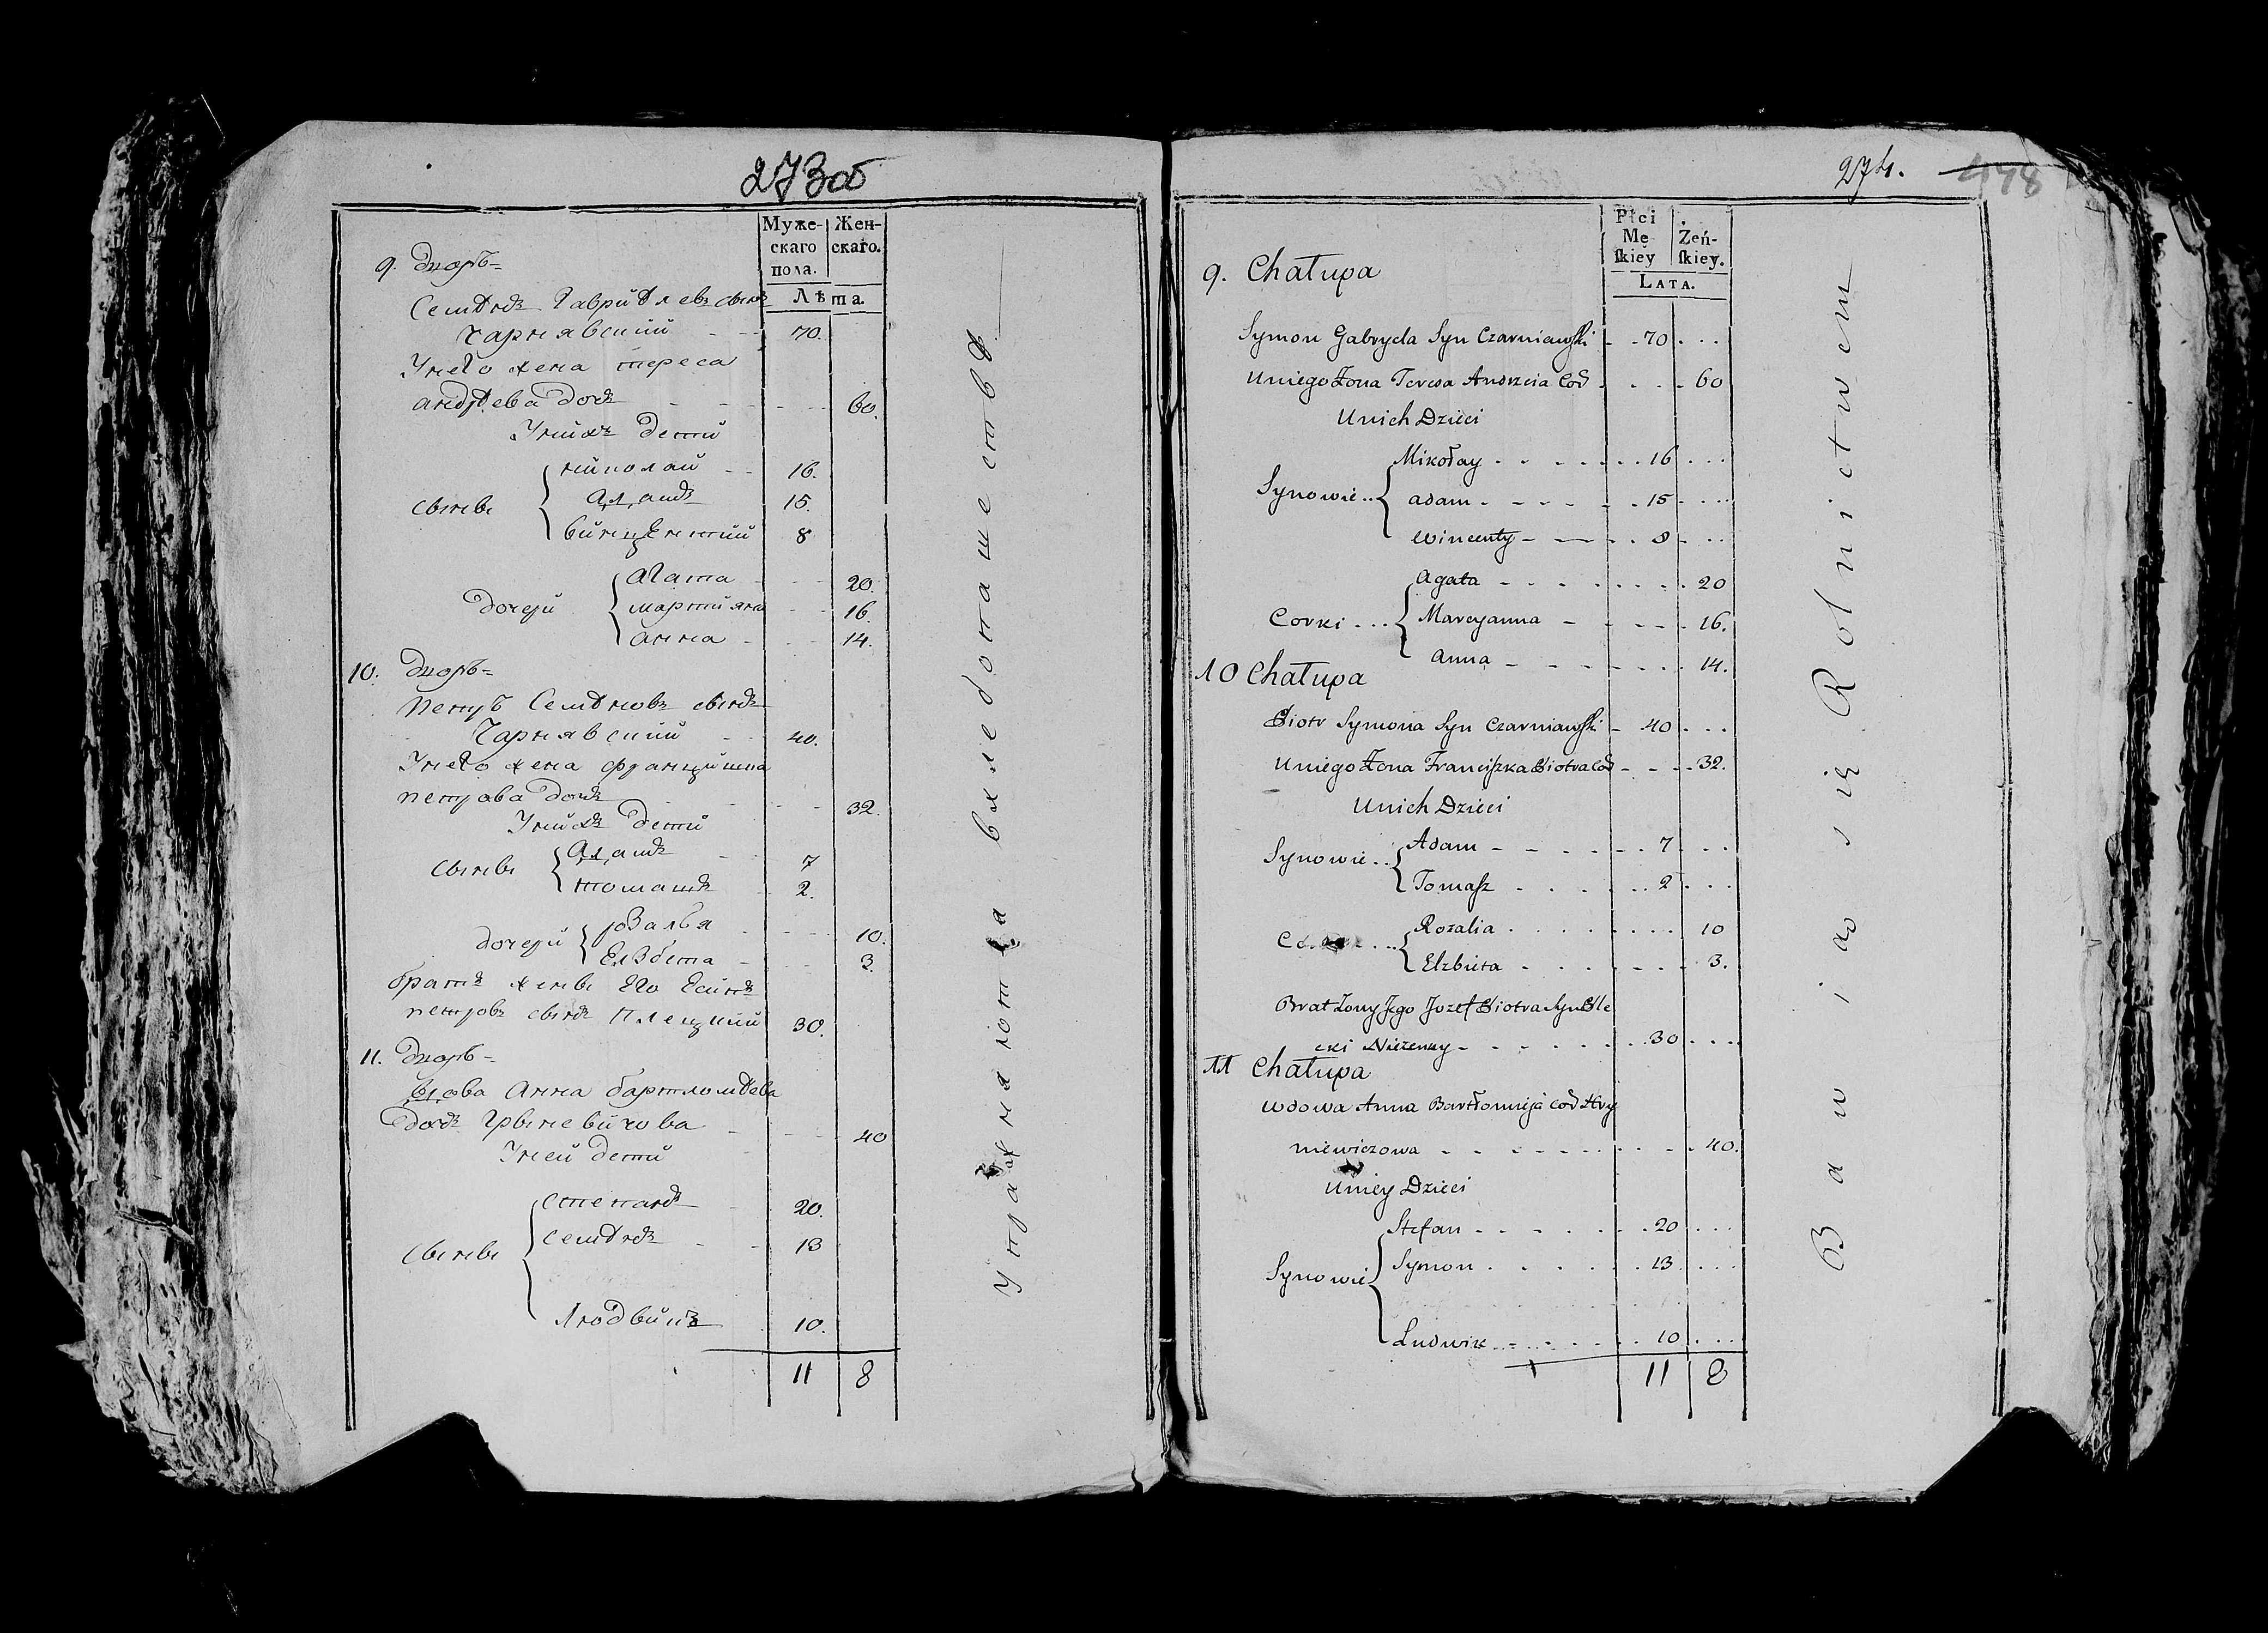 273об
Муже- Жен-
скаго скаго.
пола.
Лѣта.
9. Дворъ
Семѣнъ Гаврiѣлевъ сынъ
Чарнявскiй 70.
У него жена тереса
андрѣева дочь 60.
У нихъ дети
сыны
николай 16.
адамъ 15.
винцентiй 8
дочери
агата 20.
марцiяна 16.
анна 14.
10. Дворъ
петръ Семѣновъ сынъ
Чарнявскiй 40.
У него жена францишка
петрова дочь 32.
У нихъ дети
сыны
адамъ 7
томашъ 2.
дочери
розалья 10.
елзбета 3.
братъ жены его
петровъ сынъ Плецкий 30.
11. Дворъ
вдова Анна бартломѣева
дочь Грыневичова 40
У ней дети
сыны
степанъ 20.
семѣнъ 13
Людвикъ 10.
11 8
упражняютца вхледопашествѣ
274. 448
Płci
Mę Żeń-
skiey skiey.
LATA.
9. Chałupa
Symon Gabryela Syn Czarniawski 70
Uniego Żona Teresa Andrzeia Cod 60
Unich Dzieci
Synowie
Mikołay 16
Adam 15
Wincenty 8
Corki
Agata 20
Marcyanna 16.
Anna 14.
10 Chałupa
Piotr Symona Syn Czarniawski 40
Uniego Żona Franciszka Piotra Cod 32.
Unich Dzieci
Synowie
Adam 7
Tomasz 2
Rozalia 10
Elzbieta 3.
Brat Żony Jego Jozef Piotra Syn Ple
cki Nieżenny 30
11 Chałupa
Wdowa Anna Bartłomieja Cod Hry
niewiczowa 40.
Uniey Dzieci
Synowie
Stefan 20
Symon 13
Ludwik 10
11 8
Bawią się Rolnictwem